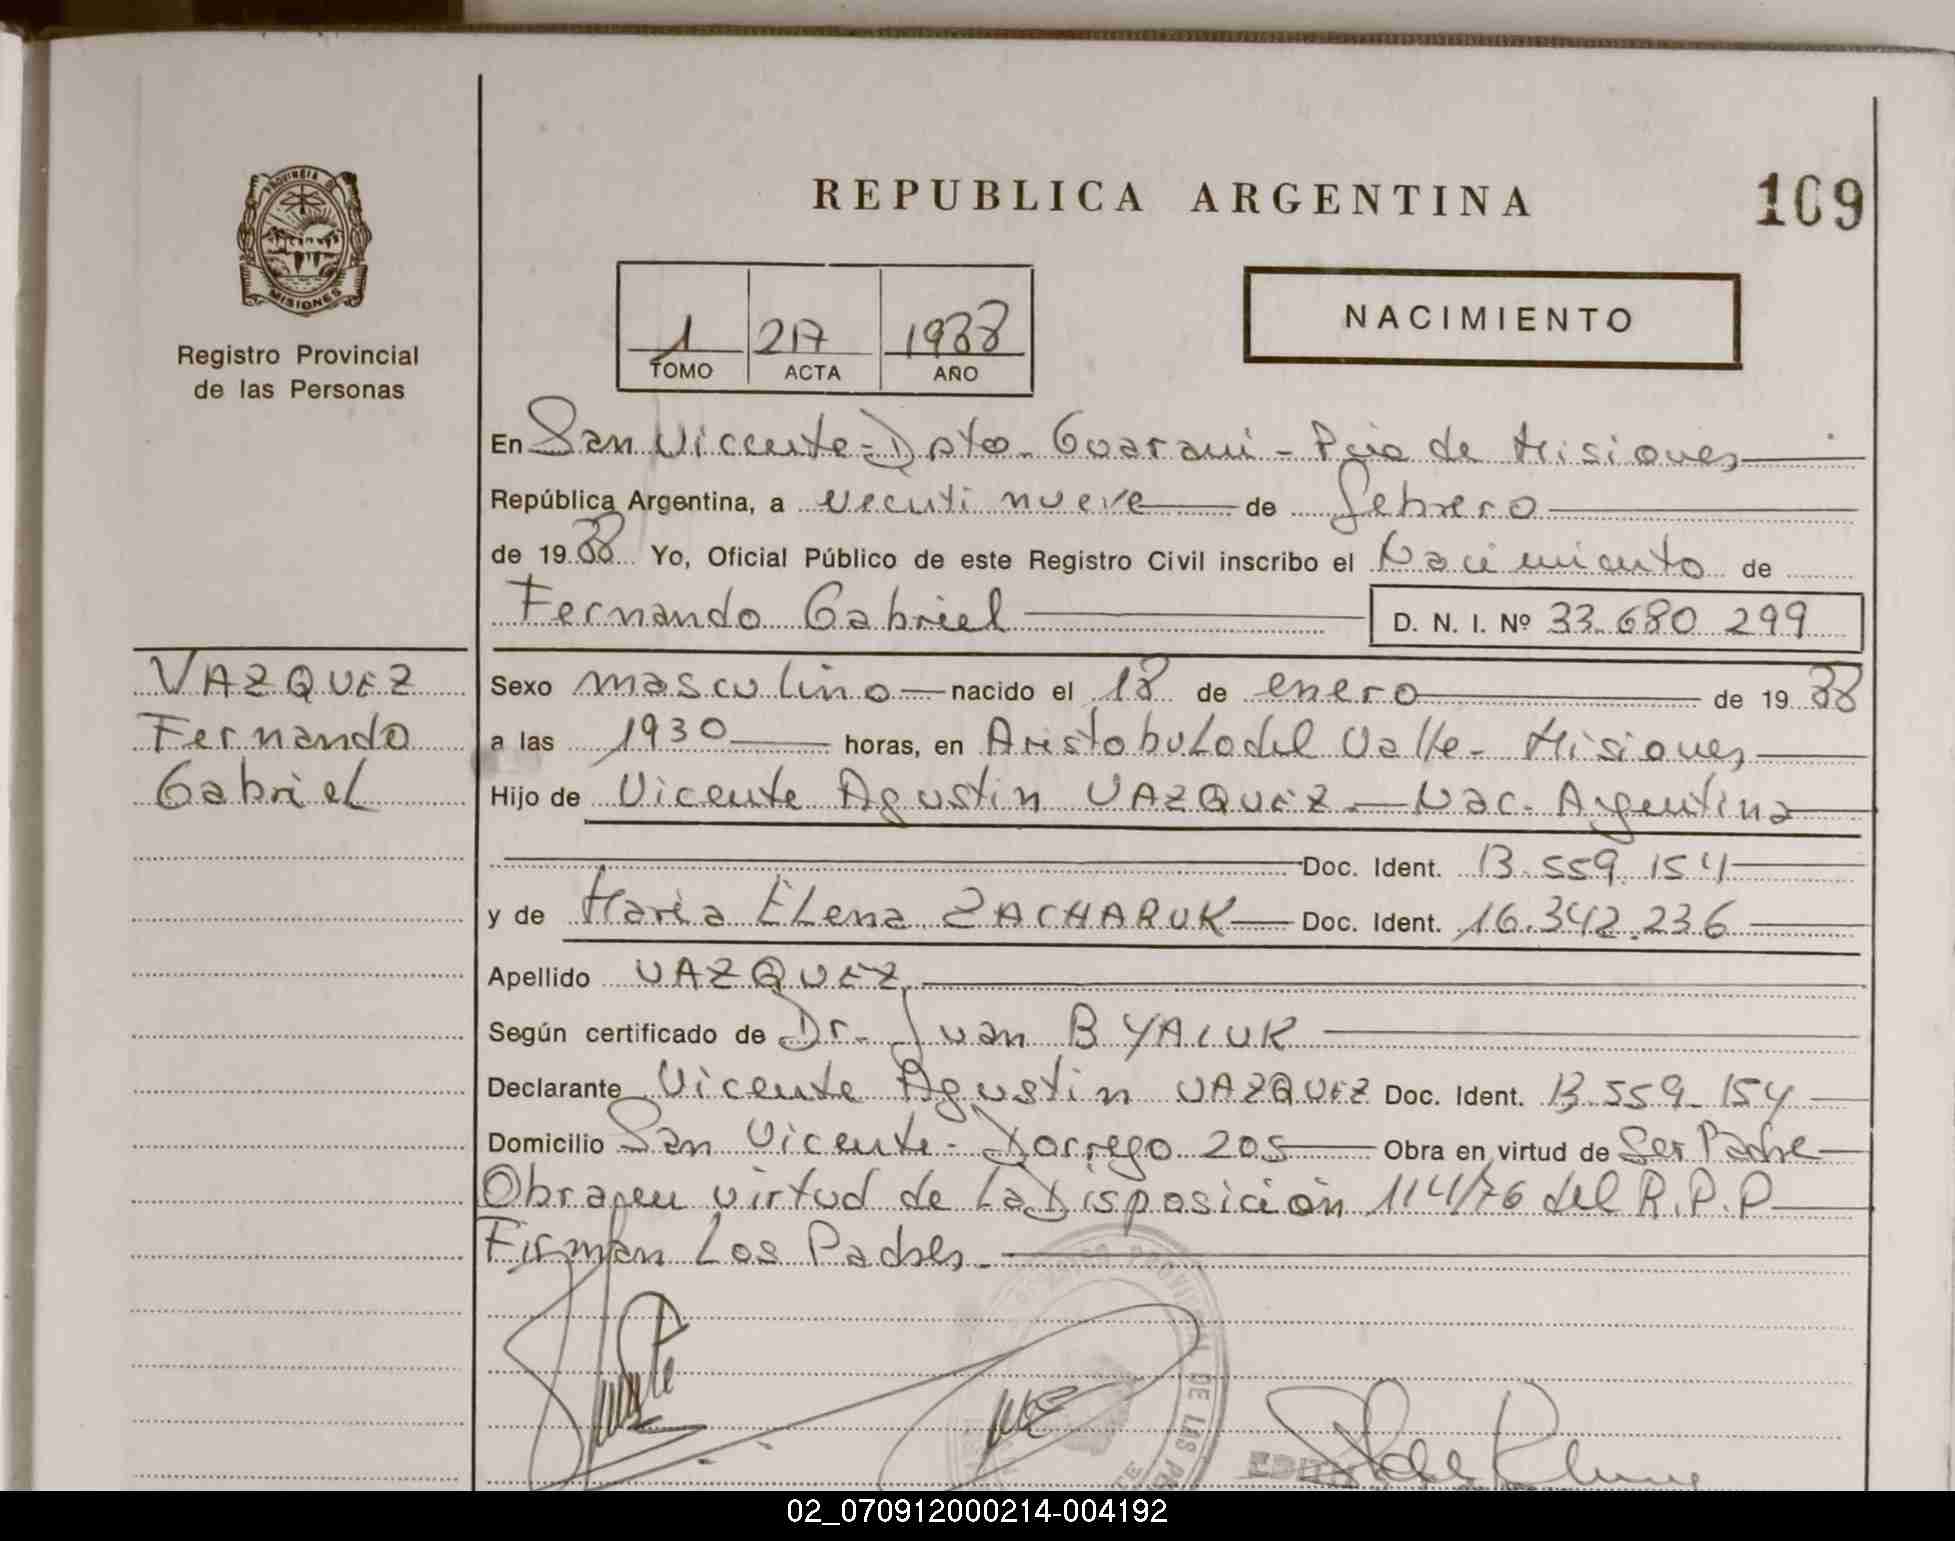 REPUBLICA ARGENTINA
109
PROVINCIA DE
MISIONES
Registro Provincial
de las Personas
1 217 1988
TOMO ACTA AÑO
NACIMIENTO
En San Vicente - Dpto. Guarani - Pcia de Misiones
República Argentina, a veinti nueve de febrero
de 1988 Yo, Oficial Público de este Registro Civil inscribo el Nacimiento de
Fernando Gabriel D. N. I. Nº 33.680 299
VAZQUEZ
Fernando
Gabriel
Sexo masculino nacido el 18 de enero de 1988
a las 1930 horas, en Aristobulo del Valle - Misiones
Hijo de Vicente Agustin VAZQUEZ - Nac. Argentina
Doc. Ident. 13.559.154
y de Maria Elena ZACHARUK Doc. Ident. 16.342.236
Apellido VAZQUEZ
Según certificado de Dr. Juan B YALUK
Declarante Vicente Agustin VAZQUEZ Doc. Ident. 13.559.154
Domicilio San Vicente - Dorrego 205 Obra en virtud de Ser Padre
Obra en virtud de La Disposición 114/76 del R.P.P
Firman Los Padres.
PROVINCIAL DE LAS
02_070912000214-004192